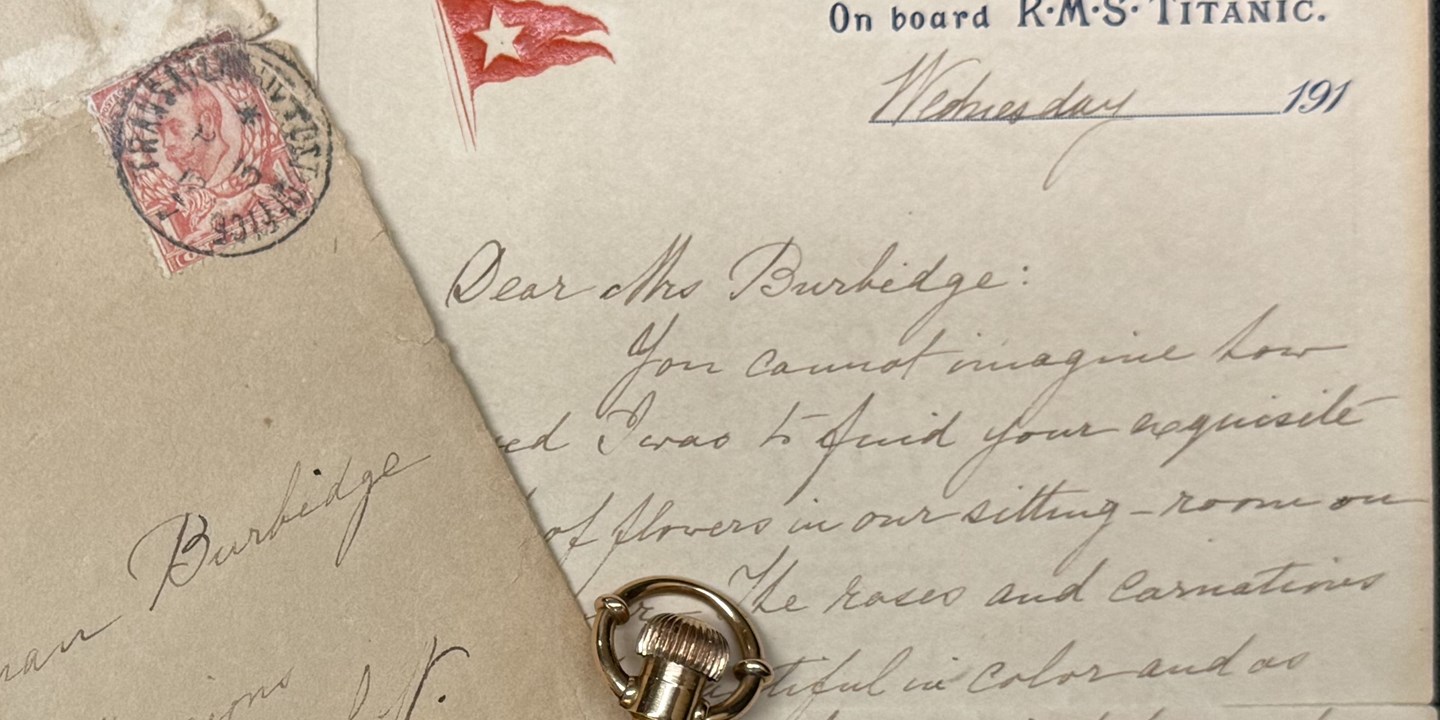 On board R·M·S· TITANIC.
Wednesday 191
Dear Mrs Burbidge:
You cannot imagine how
I was to find your exquisite
of flowers in our sitting-room on
The roses and carnations
in color and as
TRANSATLANTIC POST OFFICE
Burbidge